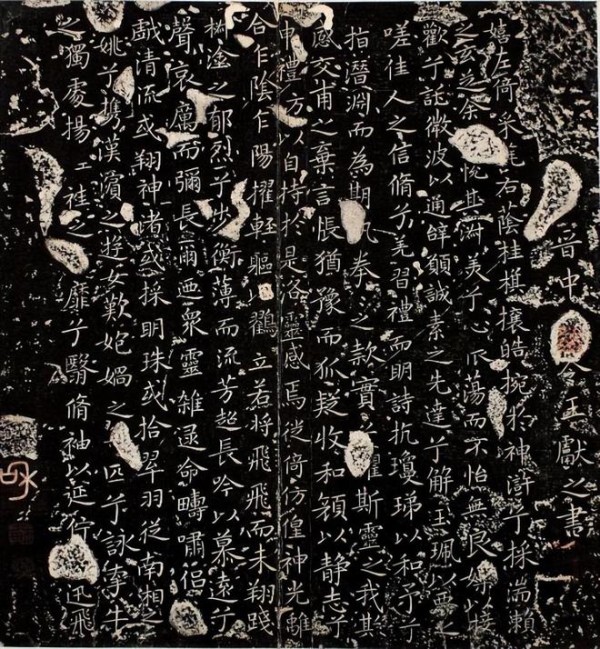 晋中令王獻之書
嬉左倚采旄右蔭桂棋攘皓捥於神滸兮採湍瀨
之玄芝余悅其淑美兮心振蕩而不怡無良媒以接
歡兮託微波以通辭願誠素之先達兮解玉珮以要之
嗟佳人之信脩兮羌習禮而明詩抗瓊珶以和予兮
指潛淵而為期執拳之款實懼斯靈之我欺
感交甫之棄言悵猶豫而狐疑收和顏以静志兮
申禮防以自持於是洛靈感焉徙倚仿偟神光離
合乍陰乍陽擢輕軀鶴立若將飛飛而未翔踐
椒塗之郁烈兮步衡薄而流芳超長吟以慕遠兮
聲哀厲而彌長爾迺眾靈雜遝命疇嘯侶
戲清流或翔神渚或採明珠或拾翠羽從南湘之
姚兮攜漢濱之遊女歎妃媧之匹兮詠牽牛
之獨處揚袿之靡兮翳脩袖以延佇迅飛